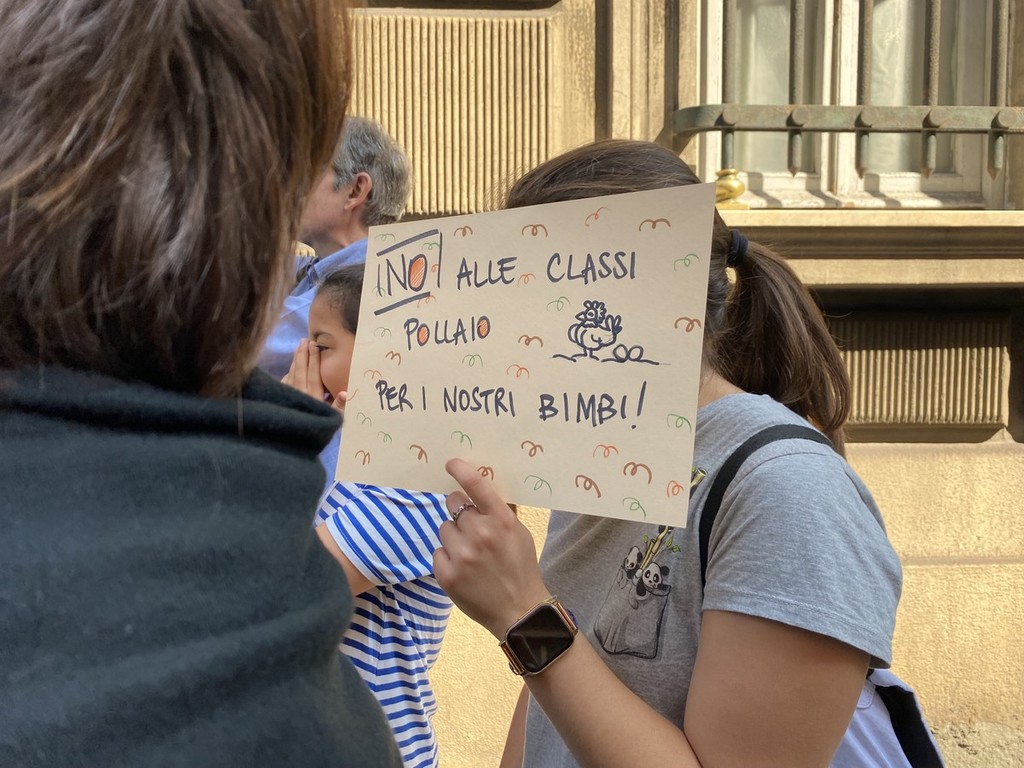 NO ALLE CLASSI
POLLAIO
PER I NOSTRI BIMBI!